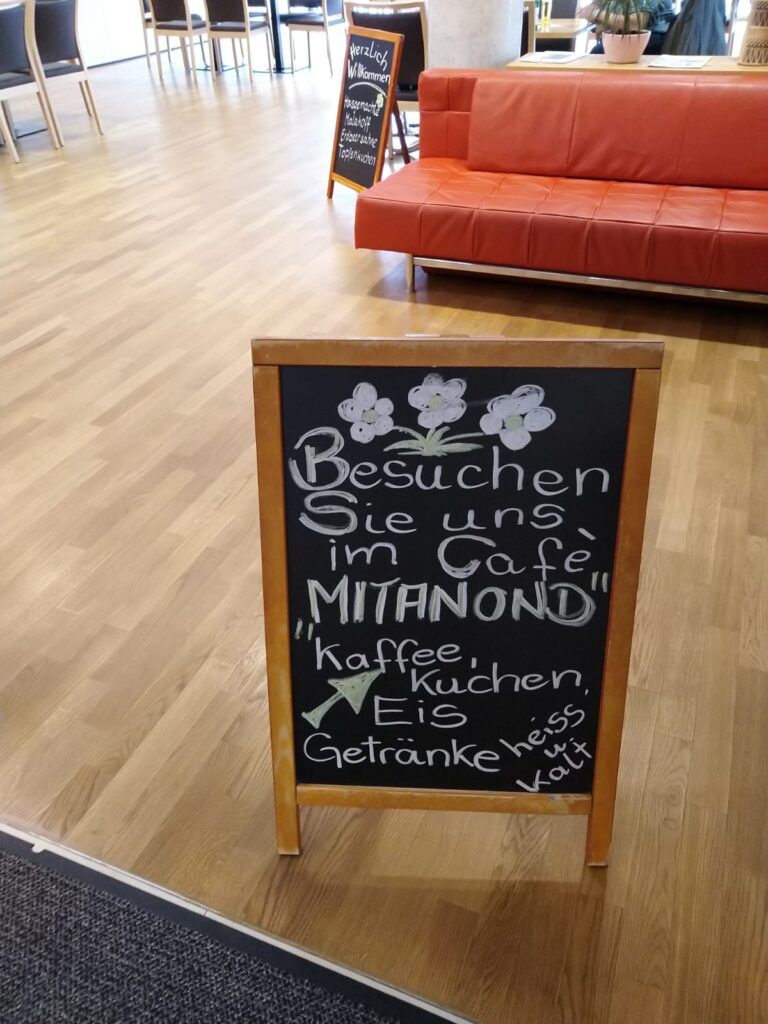 Herzlich
Willkommen
Hasgemachte
Malakoff
Erdbeersahne
Topfenkuchen
Besuchen
Sie uns
im Cafè
"MITANOND"
Kaffee,
Kuchen,
Eis
Getränke heiss
u.
Kalt